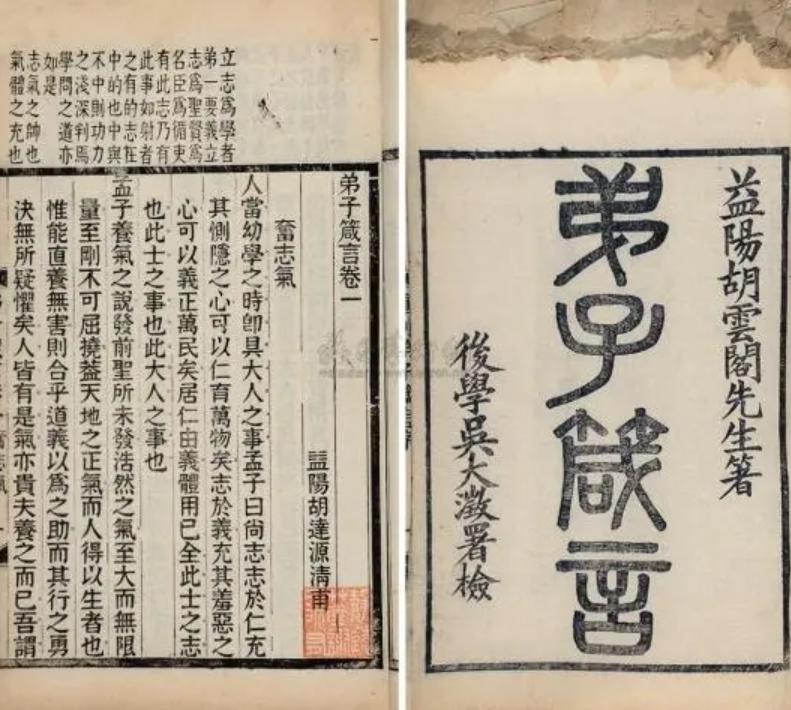 益陽胡雲閣先生箸
弟子箴言
後學吳大澂署檢
立志爲學者
弟一要義立
志爲聖賢爲
名臣爲循吏
有此志乃有
此事如射者
之有的志在
中的也中與
不中則功力
之淺深判焉
學問之道亦
如是
志氣之帥也
氣體之充也
弟子箴言卷一
益陽胡達源清甫
奮志氣
人當幼學之時卽具大人之事孟子曰尚志志於仁充
其惻隱之心可以仁育萬物矣志於義充其羞惡之
心可以義正萬民矣居仁由義體用已全此士之志
也此士之事也此大人之事也
孟子養氣之說發前聖所未發浩然之氣至大而無限
量至剛不可屈撓蓋天地之正氣而人得以生者也
惟能直養無害則合乎道義以爲之助而其行之勇
決無所疑懼矣人皆有是氣亦貴夫養之而已吾謂